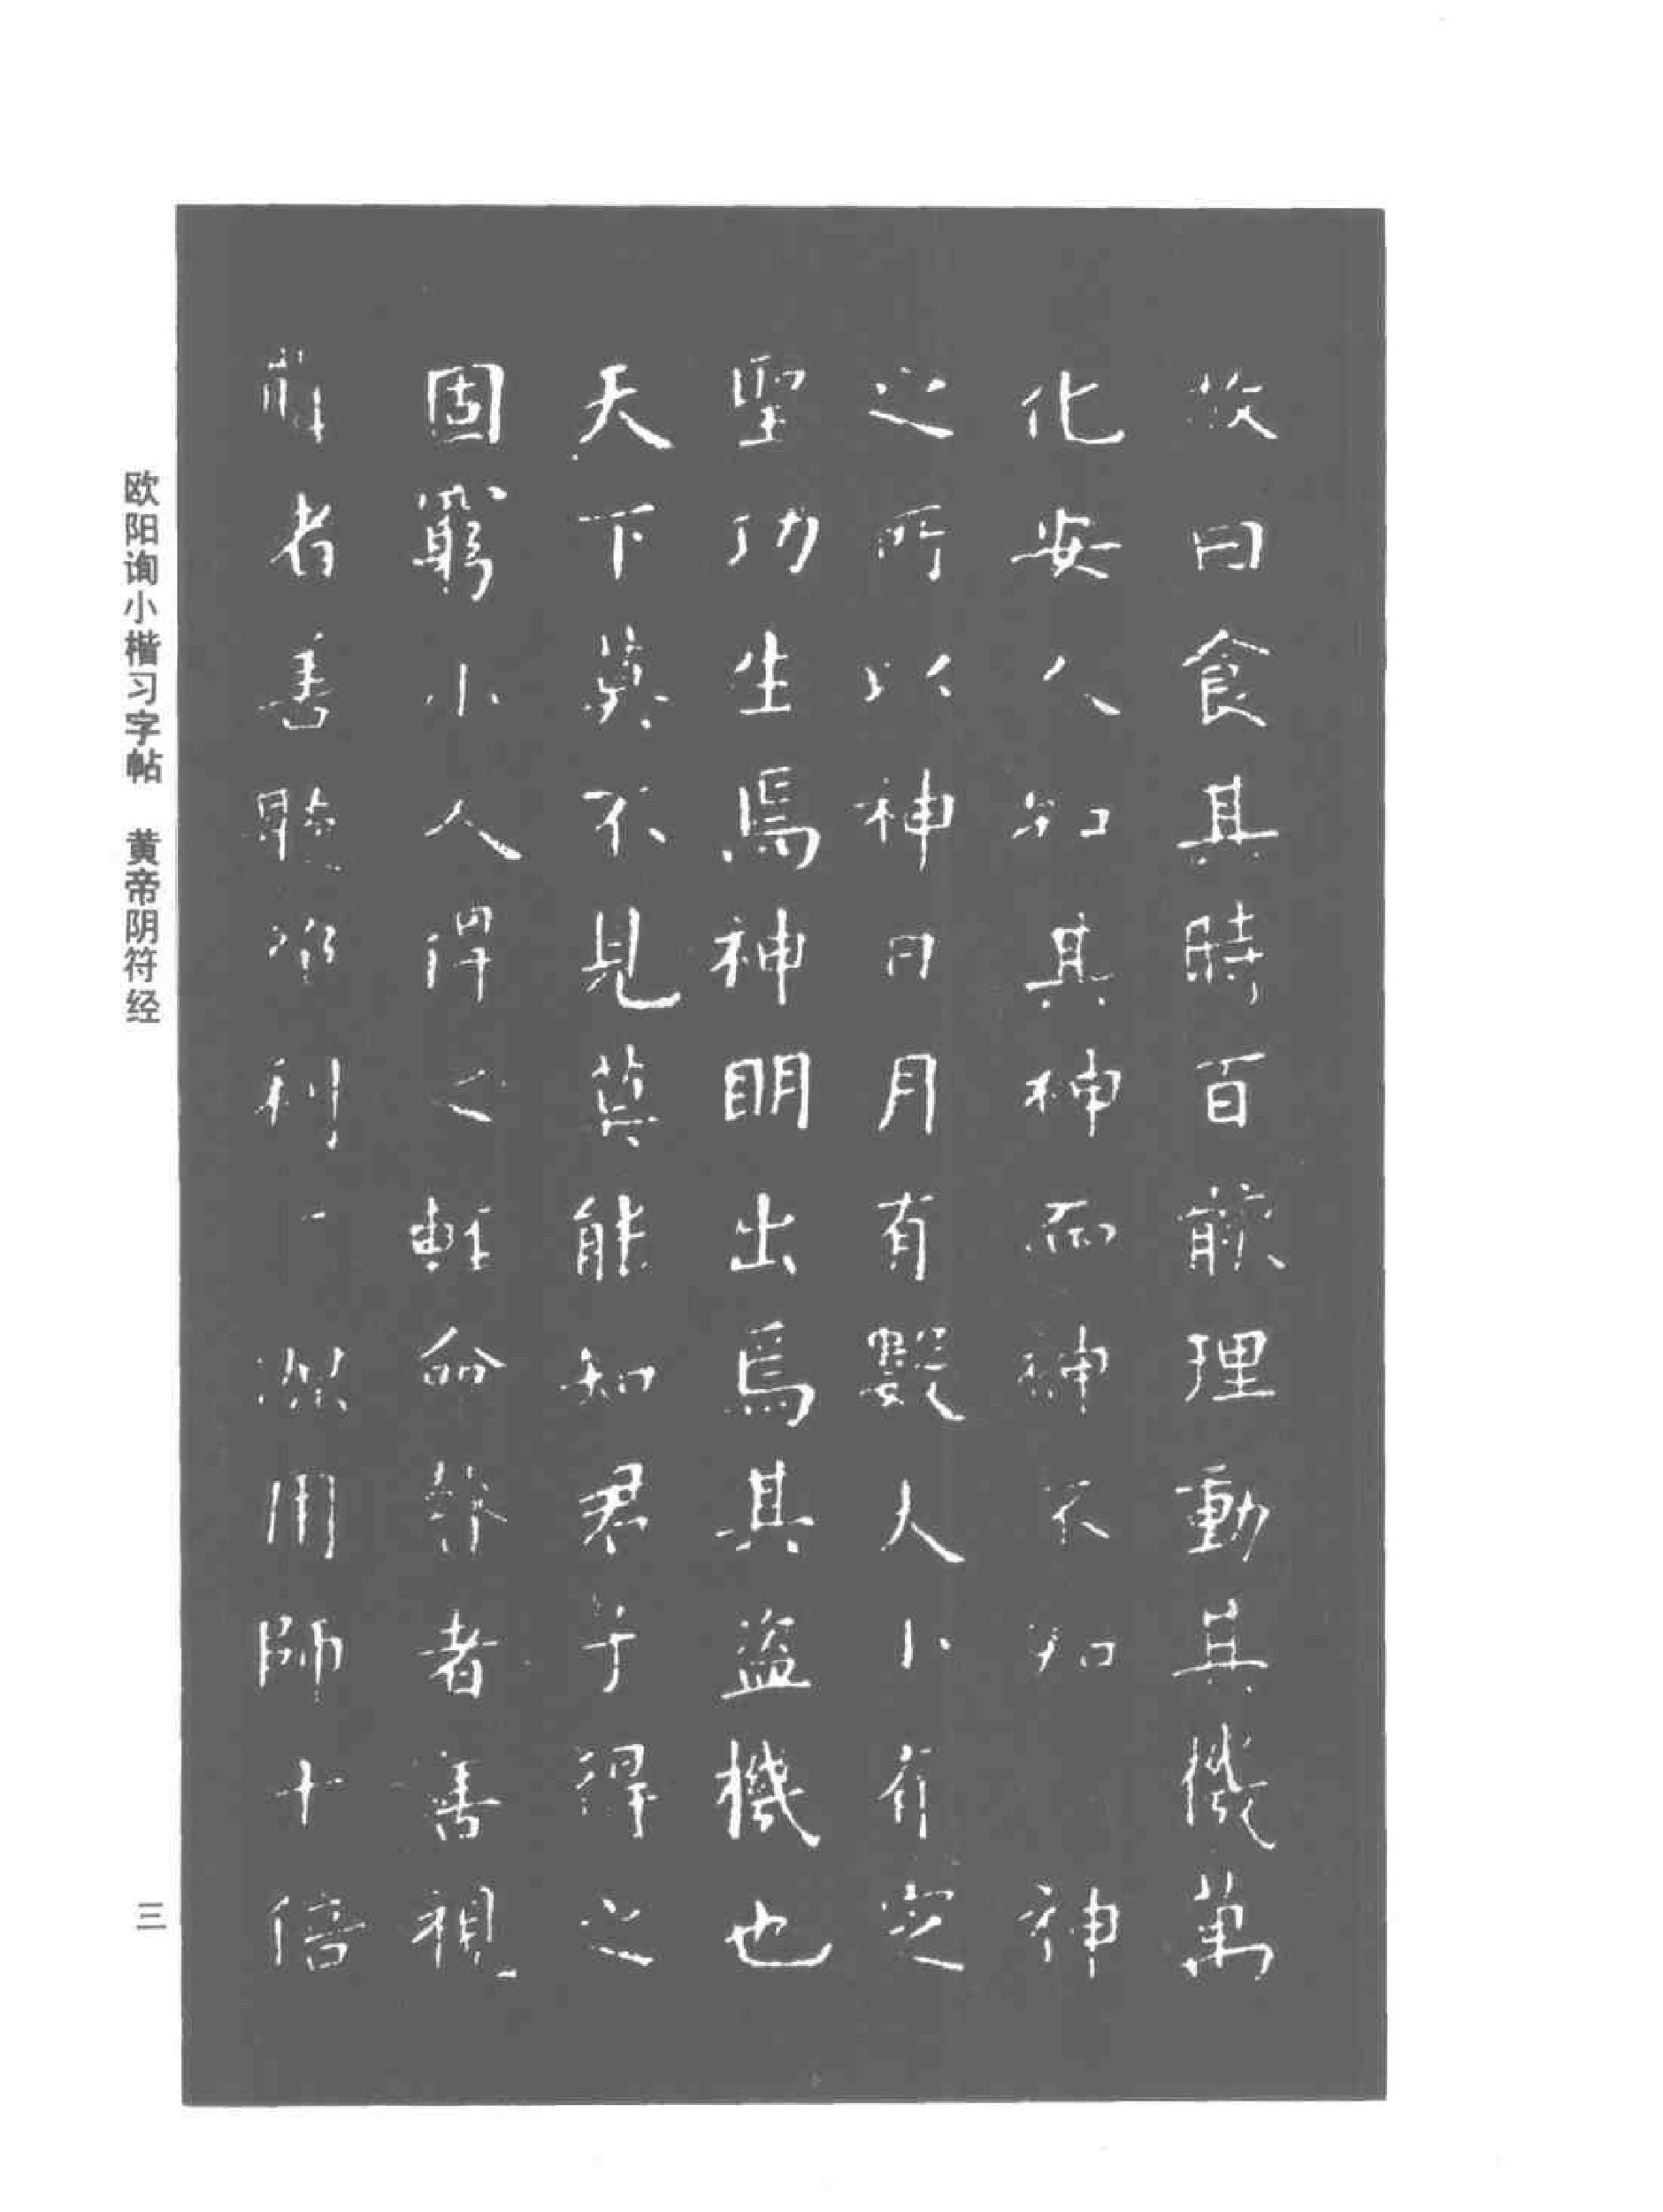 故曰食其時百骸理動其機萬
化安人知其神而神不知神
之所以神日月有數大小有定
聖功生焉神明出焉其盜機也
天下莫不見莫能知君子得之
固窮小人得之輕命瞽者善視
者善聽絕利一源用師十倍
欧阳询小楷习字帖 黄帝阴符经
三